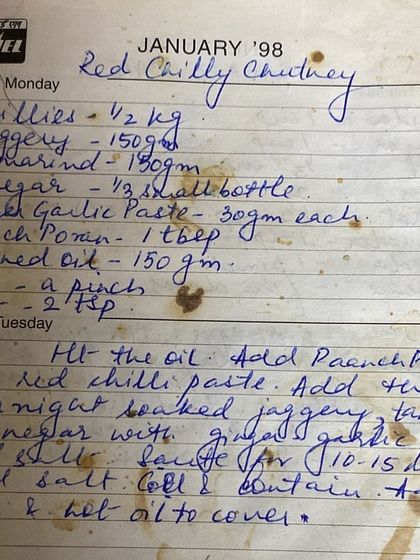 JANUARY '98
Red Chilly Chutney
Monday
llies - ½ kg
ggery - 150gm
marind - 150gm
egar - ⅓ small bottle.
Garlic Paste - 30gm each.
ch Poran - 1 tbsp
ned oil - 150 gm.
- a pinch
- 2 tsp.
uesday
Ht the oil. Add Paanch P
red chilli paste. Add th
night soaked jaggery, ta
negar with ginger garlic
salt. Saute for 10-15
salt. Cool & contain. A
& hot oil to cover.